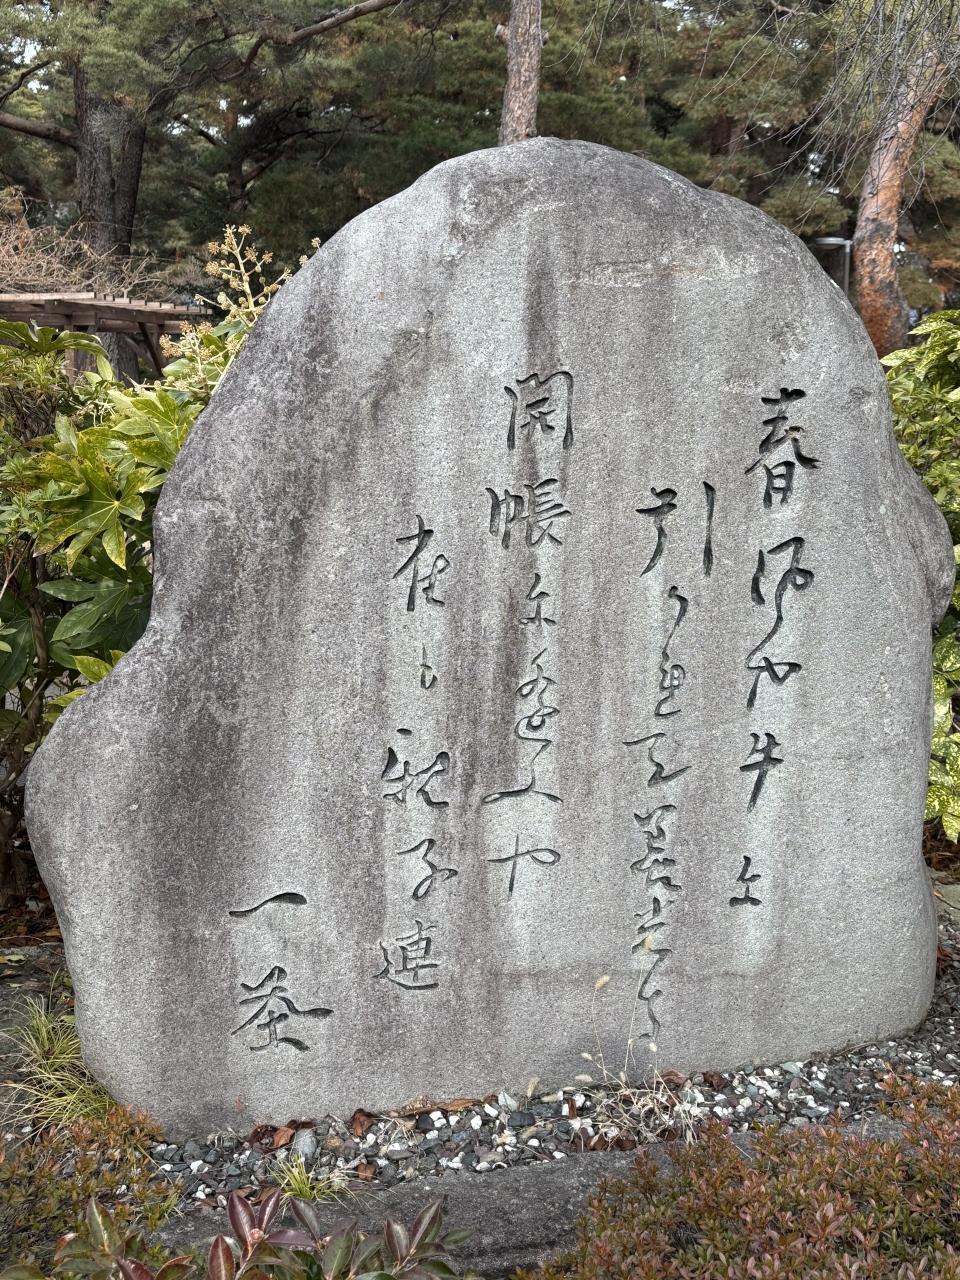 春風や牛に
引かれて善光寺
開帳に逢ふや
雀も親子連
一茶